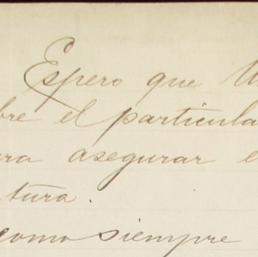 Espero que
bre el particula
ra asegurar e
tura.
como siempre